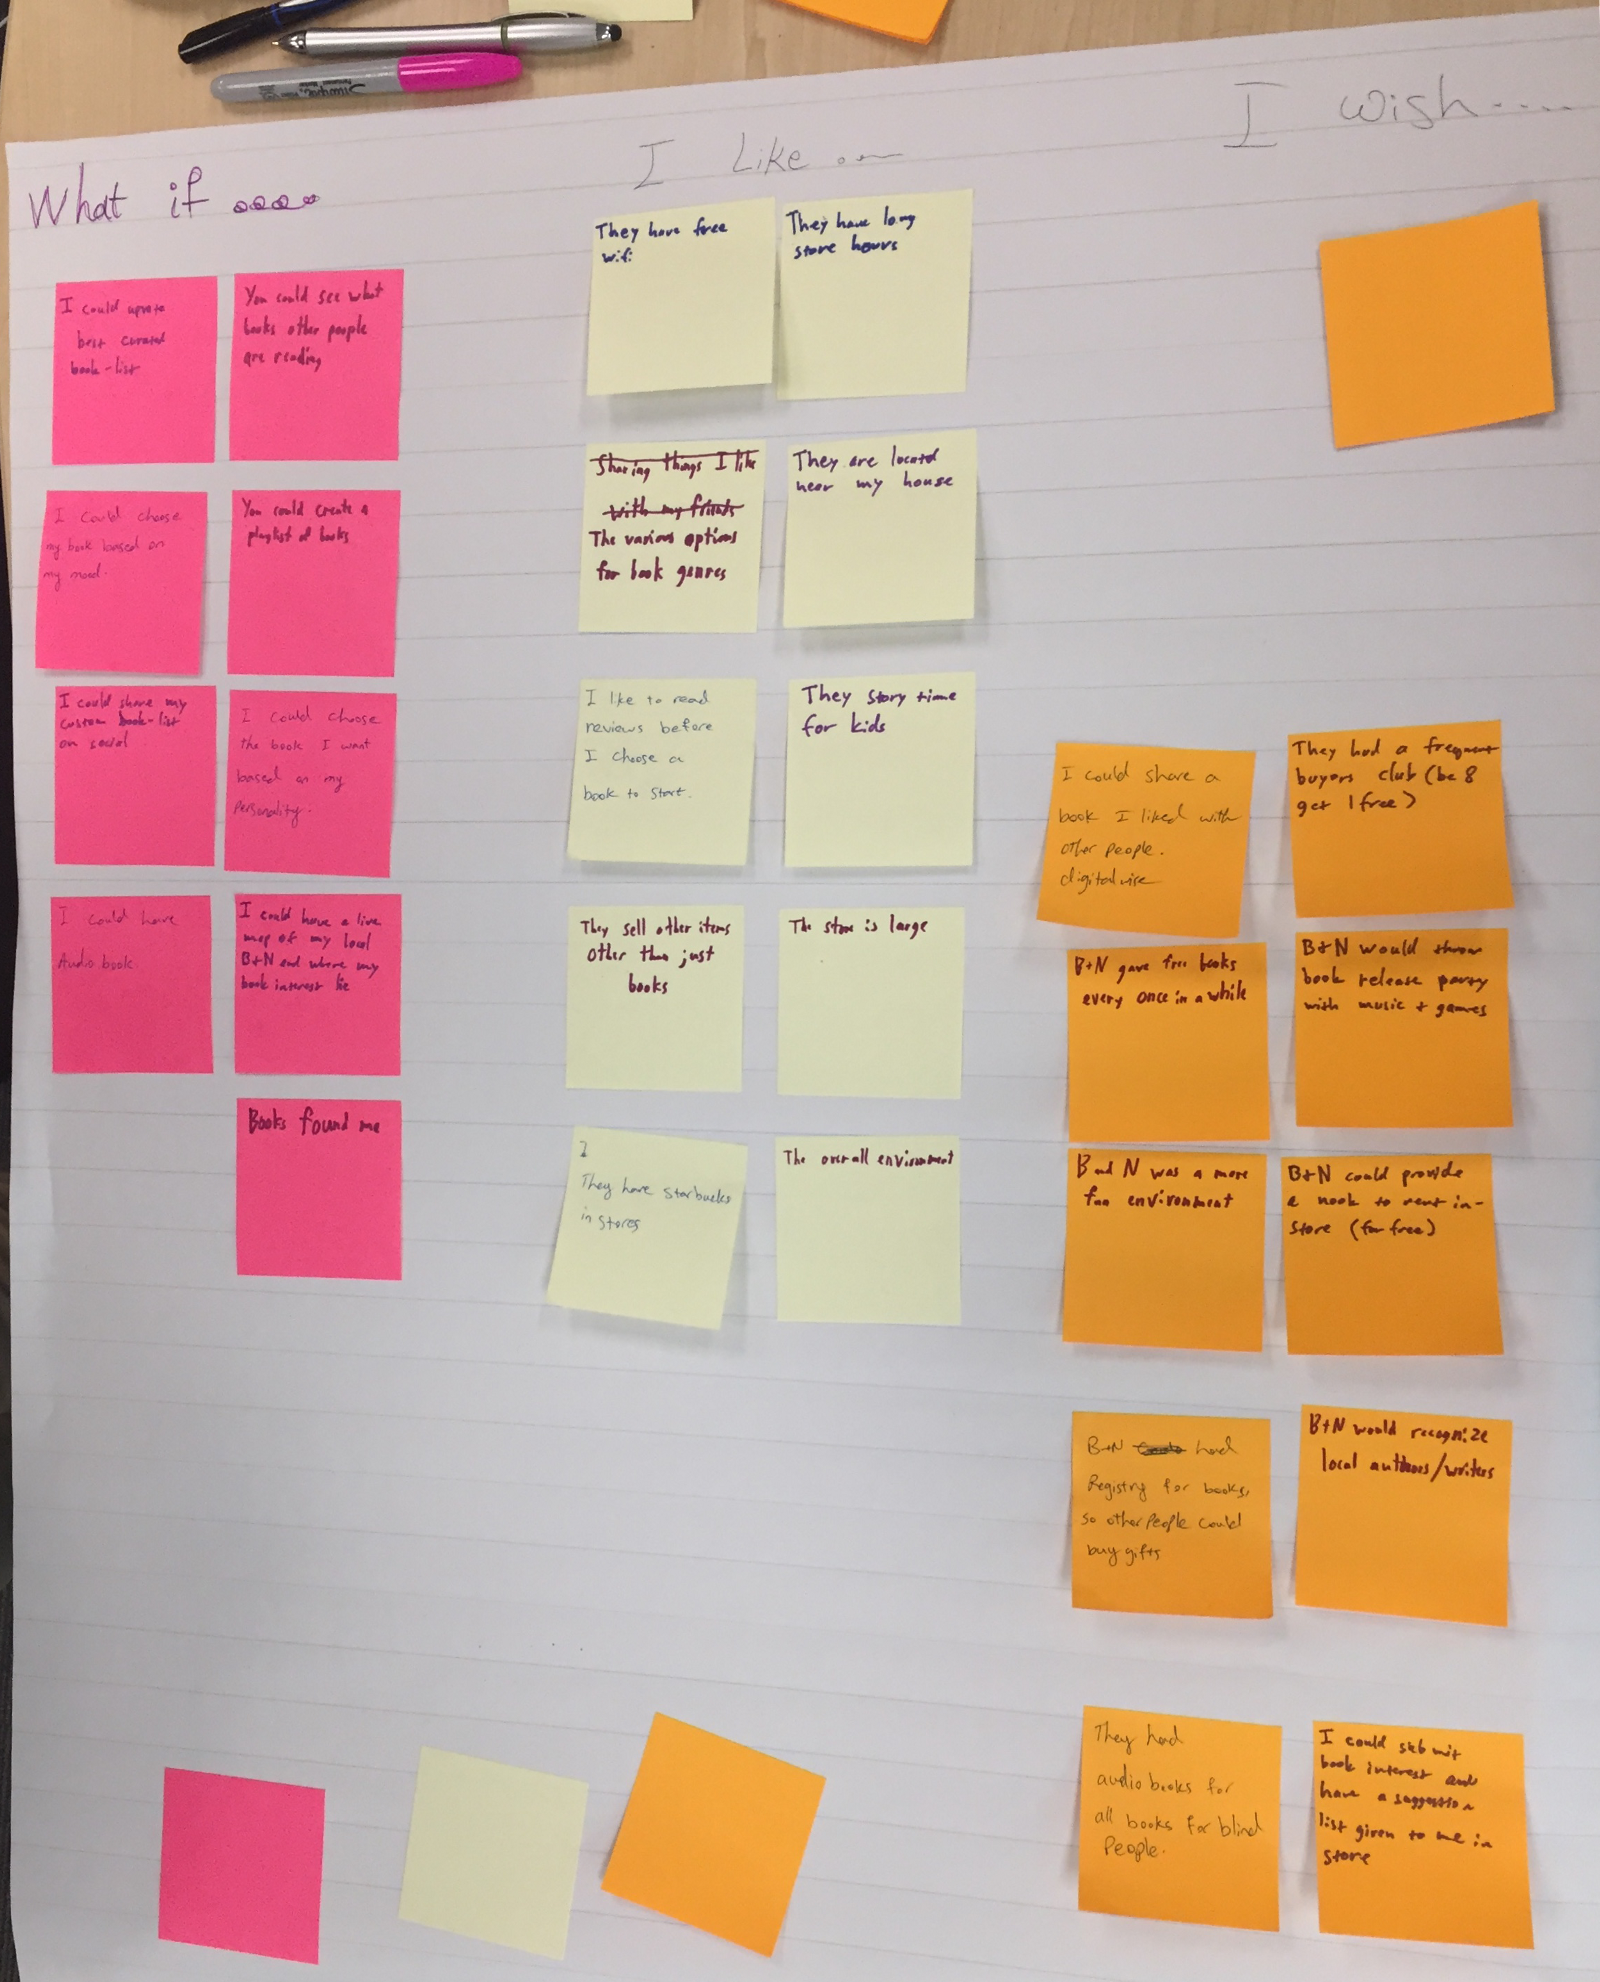 What if ....
I could upvote
best curated
book-list
You could see what
books other people
are reading
I could choose
my book based on
my mood.
You could create a
playlist of books
I could share my
custom book-list
on social
I could choose
the book I want
based on my
Personality.
I could have
Audio book.
I could have a live
map of my local
B+N and where my
book interest lie
Books found me
I Like ...
They have free
wifi
They have long
store hours
Sharing things I like
with my friends
The various options
for book genres
They are located
near my house
I like to read
reviews before
I choose a
book to start.
They story time
for kids
They sell other items
other than just
books
The store is large
I
They have starbucks
in stores
The overall environment
I wish....
I could share a
book I liked with
other people.
digitalwise
They had a frequent
buyers club (be 8
get 1 free)
B+N gave free books
every once in a while
B+N would throw
book release party
with music + games
B and N was a more
fun environment
B+N could provide
a nook to rent in-
store (for free)
B+N had
Registry for books,
so other people could
buy gifts
B+N would recognize
local authors/writers
They had
audio books for
all books for blind
People.
I could submit
book interest and
have a suggestion
list given to me in
store
Sharpie